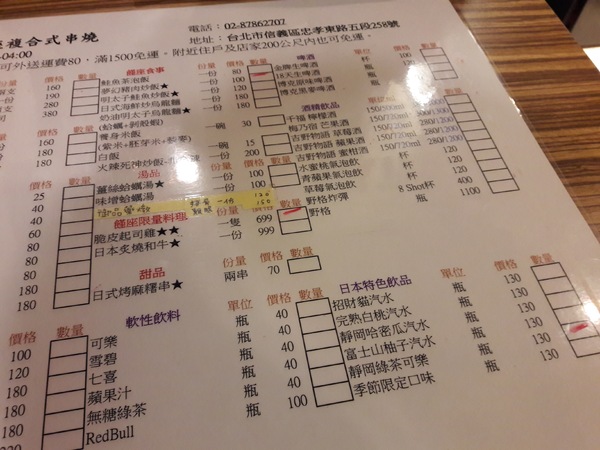 複合式串燒
電話：02-87862707
地址：台北市信義區忠孝東路五段258號
-04:00
可外送運費80，滿1500免運。附近住戶及店家200公尺內也可免運。
價格 數量 饈座食事 份量 價格 數量 啤酒
160 鮭魚茶泡飯 一份 80 金牌生啤酒 杯
190 夢幻豬肉炒飯★ 一份 100 18天生啤酒 瓶
280 明太子鮭魚炒飯★ 一份 博克原味啤酒 瓶
380 日式海鮮炒烏龍麵 一份 博克黑麥啤酒 瓶
奶油明太子烏龍麵★
(蛤蠣+剝殼蝦)
養身米飯 一碗 30
(紫米+胚芽米+藜麥)
160 白飯 一碗 15
180 火辣死神炒飯 200
酒精飲品
千福 檸檬酒 150/720ml
梅乃宿 芒果酒
吉野物語 草莓酒
吉野物語 蘋果酒
吉野物語 蜜柑酒
水蜜桃氣泡飲 杯
青蘋果氣泡飲 杯
草莓氣泡飲 杯 200
野格炸彈 8 Shot杯 450
野格 瓶 1100
價格 數量 湯品 份量 價格 數量
25 薑絲蛤蠣湯★ 一份 100
40 味增蛤蠣湯 一份 100
40 一份 120
40 150
180 饈座限量料理 份量 價格 數量
180 脆皮起司雞★★ 一隻 699
180 日本炙燒和牛★ 一份 999
180 甜品 份量 價格 數量
180 日式烤麻糬串★ 兩串 70
價格 數量 軟性飲料 單位 價格 數量
100 可樂 瓶 40
120 雪碧 瓶 40
180 七喜 瓶 40
180 蘋果汁 瓶 40
180 無糖綠茶 瓶 40
RedBull 瓶 100
日本特色飲品 單位 價格 數量
招財貓汽水 瓶 130
完熟白桃汽水 瓶 130
靜岡哈密瓜汽水 瓶 130
富士山柚子汽水 瓶 130
靜岡綠茶可樂 瓶 130
季節限定口味 瓶